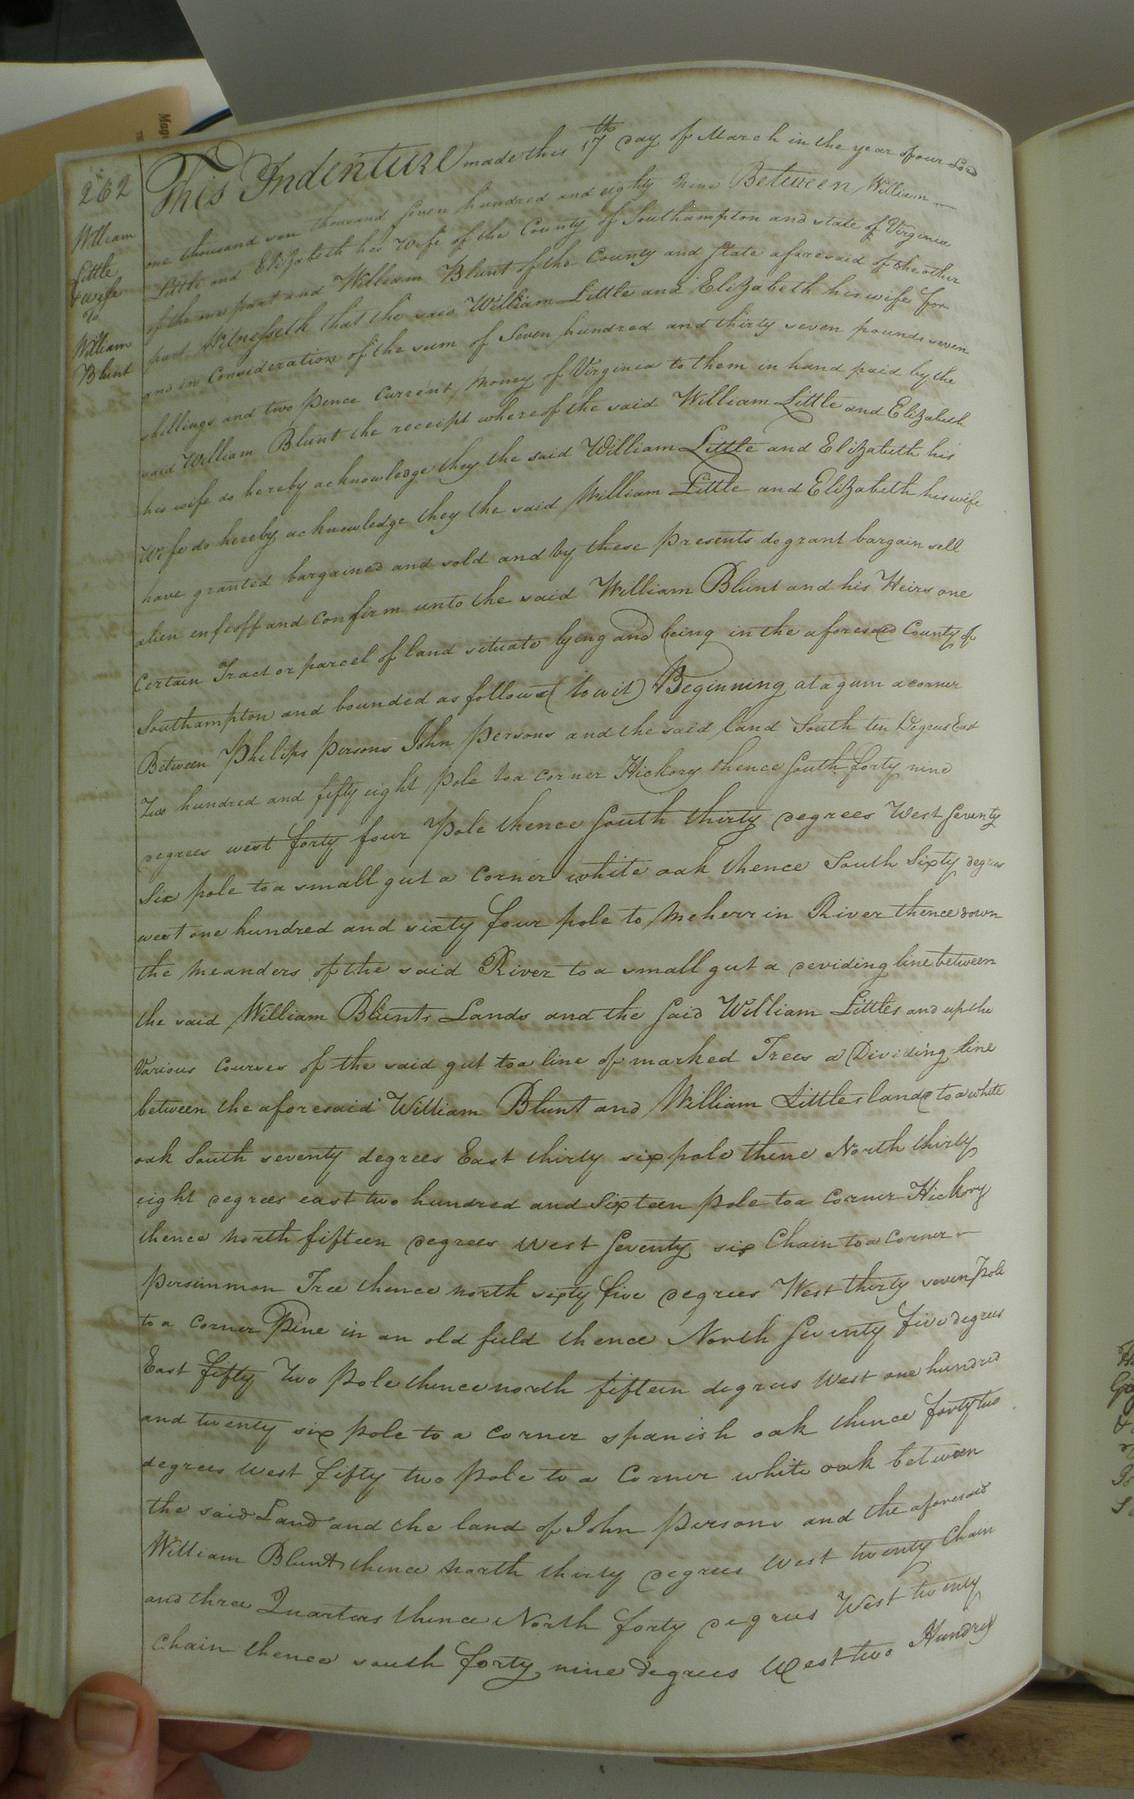 262
William
Little
& wife
To
William
Blunt
This Indenture made this 17th Day of March in the year of our Lord
one thousand sevn thousand seven hundred and eighty nine Between William
Little and Elizabeth his Wife of the County of Southampton and state of Virginia
of the one part and William Blunt of the County and State aforesaid of the other
part Witnesseth that the said William Little and Elizabeth his wife for
and in Consideration of the sum of Seven hundred and thirty seven pounds seven
shillings and two pence Current Money of Virginia to them in hand paid by the
said William Blunt the receipt whereof the said William Little and Elizabeth
his wife do hereby acknowledge they the said William Little and Elizabeth his
Wife do hereby acknowledge they the said William Little and Elizabeth his wife
have granted bargained and sold and by these presents do grant bargain sell
alien enfeoff and Confirm unto the said William Blunt and his Heirs one
Certain Tract or parcel of land situate lying and being in the aforesaid County of
Southampton and bounded as follows (to wit) Beginning at a gum a corner
Between Philips Persons John Persons and the said land South ten Degrees East
Two hundred and fifty eight Pole to a corner Hickory thence South forty nine
degrees west forty four Pole thence South thirty degrees West Seventy
Six pole to a small gut a Corner white oak thence South Sixty degrees
west one hundred and sixty four pole to Meherrin River thence down
the meanders of the said River to a small gut a deviding line between
the said William Blunts Lands and the Said William Littles and up the
Various Courses of the said gut to a line of marked Trees a Dividing line
between the aforesaid William Blunt and William Littles lands to a white
oak South seventy degrees East thirty six pole thene North thirty
eight degrees east two hundred and Sixteen pole to a Corner Hickory
thence North fifteen degrees West Seventy six Chain to a Corner
Persimmon Tree thence north sixty five degrees West thirty seven Pole
to a Corner Pine in an old field thence North Seventy five degrees
East fifty two Pole thence north fifteen degrees West one hundred
and twenty six pole to a Corner spanish oak thence forty two
degrees West fifty two pole to a Corner white oak between
the said Land and the land of John Persons and the aforesaid
William Blunts thence North thirty degrees West twenty Chain
and three Quarters thence North forty degrees West twenty
Chain thence south forty nine Degrees West two Hundred